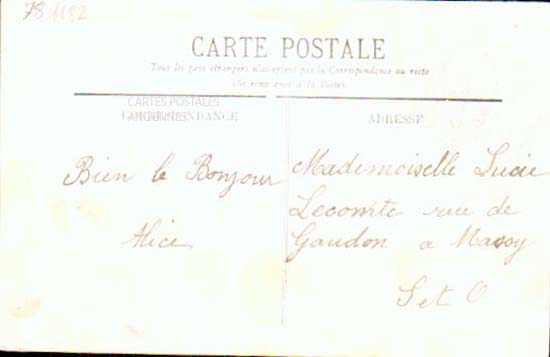 78 1152
CARTE POSTALE
Tous les pays étrangers n'acceptent pas la Correspondance au recto
(Se renseigner à la Poste).
CARTES POSTALES
CORRESPONDANCE
ADRESSE
Bien le Bonjour
Alice
Mademoiselle Lucie
Lecomte rue de
Gaudon a Massy
S et O